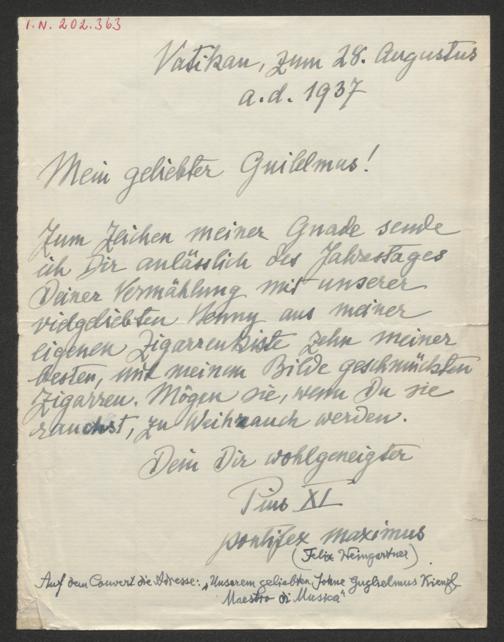 I.N. 202.363
Vatikan, zum 28. Augustus
a.d. 1937
Mein geliebter Guilelmus!
Zum Zeichen meiner Gnade sende
ich Dir anlässlich des Jahrestages
Deiner Vermählung mit unserer
vielgeliebten Henny aus meiner
eigenen Zigarrenkiste zehn meiner
besten, mit meinem Bilde geschmückten
Zigarren. Mögen sie, wenn Du sie
rauchst, zu Weihrauch werden.
Dein Dir wohlgeneigter
Pius XI
pontifex maximus
(Felix Weingartner)
Auf dem Couvert die Adresse: „Unserem geliebten Sohne Guglielmus Kienzl
Maestro di Musica“